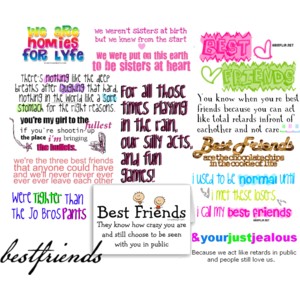 we are
HOMIES
FOR LYFE
there's nothing like the deep
breaths after laughing that hard.
nothing in the world like a sore
stomach for the right reasons.
you're my girl to the fullest
if you're shootin' up
the place i'm bringing
the bullets.
we're the three best friends
that anyone could have
and we'll never never ever
ever leave each other
WE'RE TIGHTER THAN
THE JO BROS PANTS
bestfriends
we weren't sisters at birth
but we knew from the start
we were put on this earth
to be sisters at heart
FOR ALL those
times playing
in the rain,
our silly acts,
and fun
games!
Best Friends
They know how crazy you are
and still choose to be seen
with you in public
BEST
FRIENDS
You know when you're best
friends because you can act
like total retards infront of
eachother and not care
Best Friends
are the chocolate chips
in the cookie of life
i used to be normal until
i met these losers
i call my best friends
&yourjustjealous
Because we act like retards in public
and people still love us.